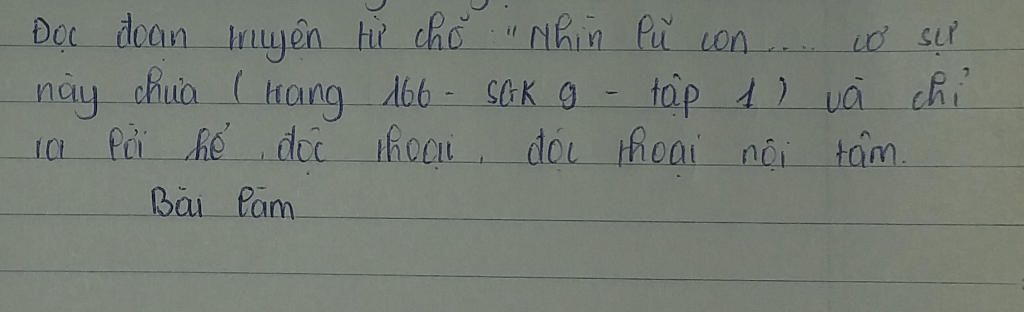 Đọc đoạn truyện từ chỗ "Nhìn lũ con .... cơ sự
này chưa ( trang 166 - SGK 9 - tập 1 ) và chỉ
ra lời kể, độc thoại, độc thoại nội tâm.
Bài làm